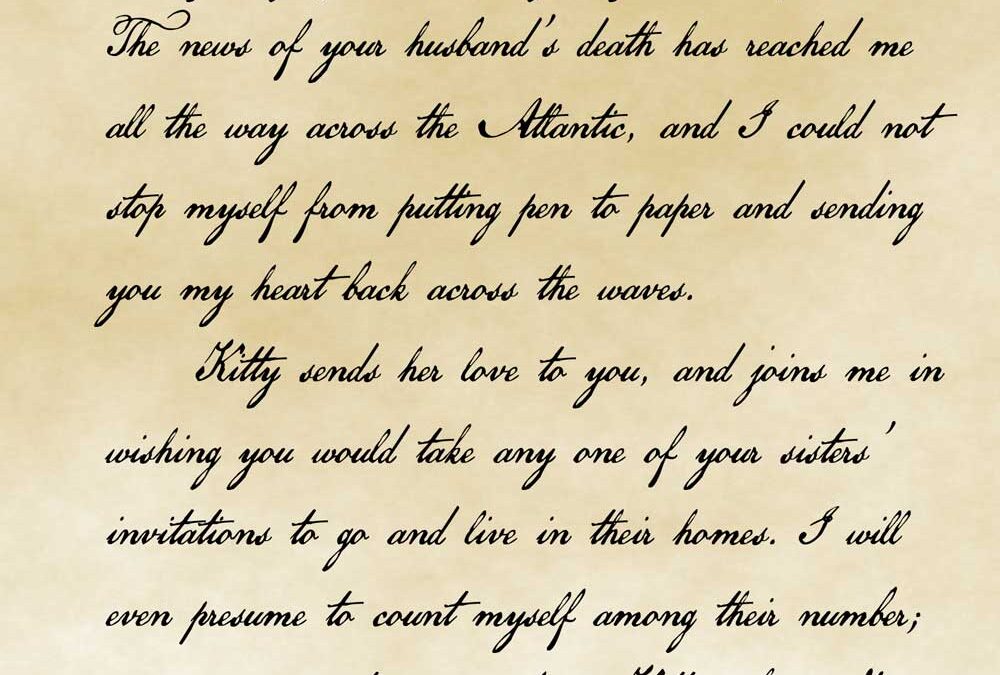 The news of your husband's death has reached me
all the way across the Atlantic, and I could not
stop myself from putting pen to paper and sending
you my heart back across the waves.
Kitty sends her love to you, and joins me in
wishing you would take any one of your sisters'
invitations to go and live in their homes. I will
even presume to count myself among their number;